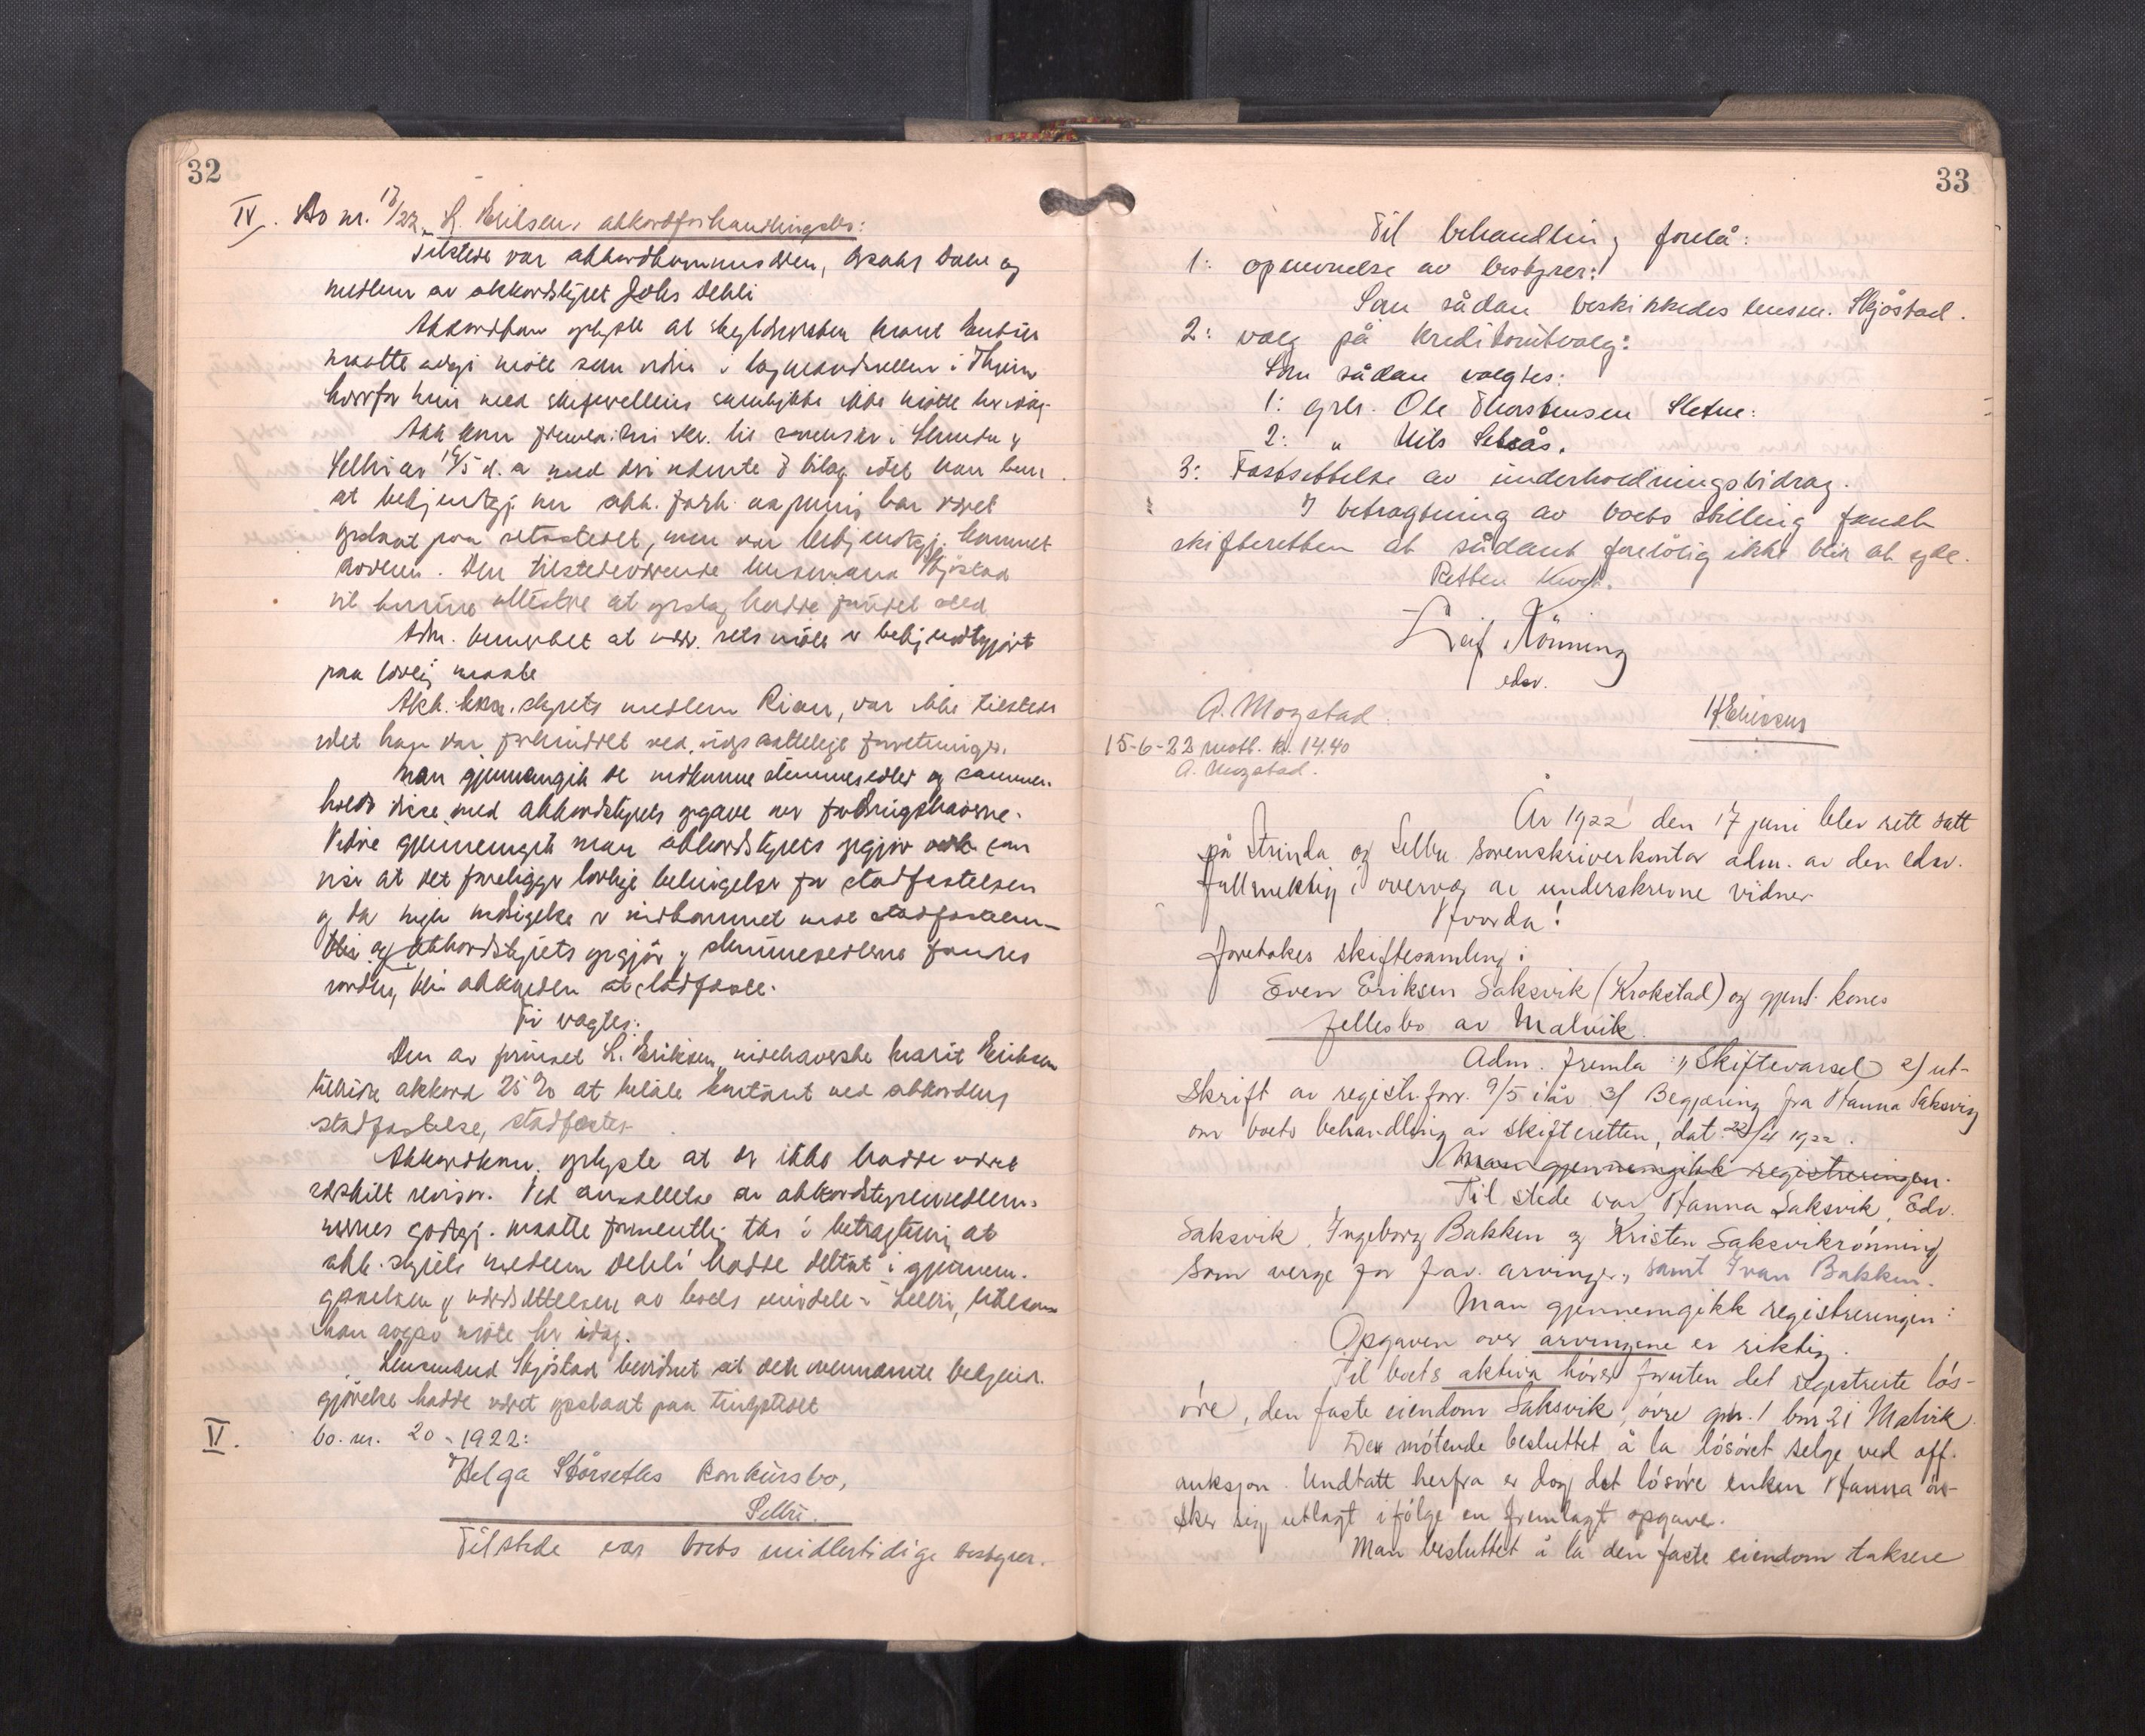 32
IV. Bo nr. 17/22. L. Eriksens akkordforhandlingsbo:
Tilstede var akkordkommissæren, Dahl og
medlem av akkordstyret Johs Dehli
Akkordkom. oplyste at
maatte avgi møte som vidne i lagmandsretten i Thjem
hvorfor hun med skifterettens samtykke ikke møtte her idag.
Akk. kom. fremla: skr. til sorenskr. i Strinda &
Selbu av 19/5 d. a. med deri nevnte 8 bilag idet han bem.
at bekjendtgj. om akk. forh. aapning har været
opslaaet paa retsstedet, men var bekjendtgj. kommet
Den tilstedeværende lensmand Skjøstad
vil kunne attestere at opslag hadde fundet sted
Adm. bemerket at nærv. retsmøte er bekjendtgjort
paa lovlig maate
Akk. styrets medlem Rian, var ikke tilstede
idet han var forhindret ved uopsættelige forretninger.
Man gjennemgik de indkomne stemmesedler og sammen-
holdt disse med akkordstyrets opgave over fordringshaverne.
Videre gjennemgik man akkordstyrets opgjør som
viser at det foreligger lovlige betingelser for stadfæstelsen
og da ingen indsigelse er indkommet mot stadfæstelsen
blir og akkordstyrets opgjør og stemmesedlerne fandtes
i orden, blir akkorden at stadfæste.
Ti vagtes:
Den av firmaet L. Eriksen, indehaverske Marit Eriksen
tilbudte akkord 25 % at betale kontant ved akkordens
stadfæstelse, stadfæstes
Akkordkom. oplyste at der ikke hadde været
særskilt revisor. Ved ansættelse av akkordstyremedlem-
mernes godtgj. maatte formentlig tas i betragtning at
akk. styrets medlem Dehli hadde deltat i gjennem-
gaaelsen og værdsættelsen av boets eiendele i Selbu, likesom
han avgav møte her idag.
Lensmand Skjøstad bevidnet at den ovennævnte bekjendt-
gjørelse hadde været opslaaet paa tingstedet
V. bo. nr. 20 - 1922:
Helga Størseths konkursbo,
Selbu.
Tilstede var boets midlertidige bestyrer.
33
Til behandling forelå:
1: opnevnelse av bestyrer:
Som sådan beskikkedes lensm. Skjøstad.
2: valg på kreditorutvalg:
Som sådan valgtes:
1: grb. Ole Thorstensen Sletne:
2: " Nils Setsås.
3: Fastsettelse av underholdningsbidrag.
I betragtning av boets stilling fandt
skifteretten at sådant foreløbig ikke blir at yde.
Retten hevet.
Leif Rönning
edsv.
A. Mogstad. H Eriksen
15-6-22 mott. kl. 14.40
A. Mogstad.
År 1922 den 17 juni blev rett satt
på Strinda og Selbu sorenskriverkontor adm. av den edsv.
fullmektig i overvær av underskrevne vidner
Hvorda!
foretokes skiftesamling i
Even Eriksen Saksvik (Krokstad) og gjenl. kones
fellesbo av Malvik.
Adm. fremla: 1) Skiftevarsel 2) ut-
skrift av registr.forr. 9/5 i år 3) Begjæring fra Hanna Saksvig
om boets behandling av skifteretten, dat. 22/4 1922.
Man gjennemgikk registreringen.
Til stede var Hanna Saksvik, Edv.
Saksvik, Ingeborg Bakken og Kristen Saksvikrønning
som verge for frav. arvinger, samt Ivan Bakken.
Man gjennemgikk registreringen:
Opgaven over arvingene er riktig.
Til boets aktiva hører foruten det registrerte løs-
øre, den faste eiendom Saksvik, övre gnr. 1 bnr 21 Malvik
Den møtende besluttet å la løsøret selge ved off.
auksjon. Undtatt herfra er dog det løsøre enken Hanna øn-
sker sig utlagt ifølge en fremlagt opgave.
Man besluttet å la den faste eiendom taksere